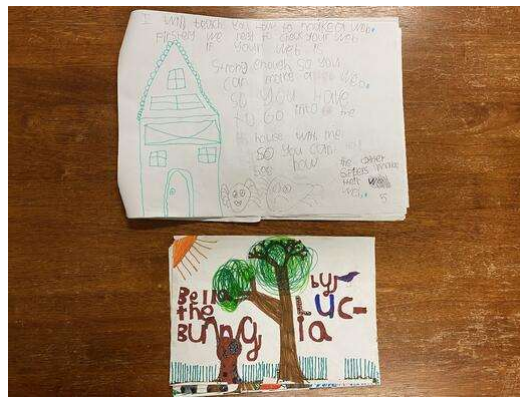 I will touch you how to make a web.
Firstly we need to check your web
if your web is
strong enough so you
can make a new web.
so you have
to go into me
house with me
so you can
see how
the other
spiders make
web
5
Bella
the
Bunny
by
Luc-
ia